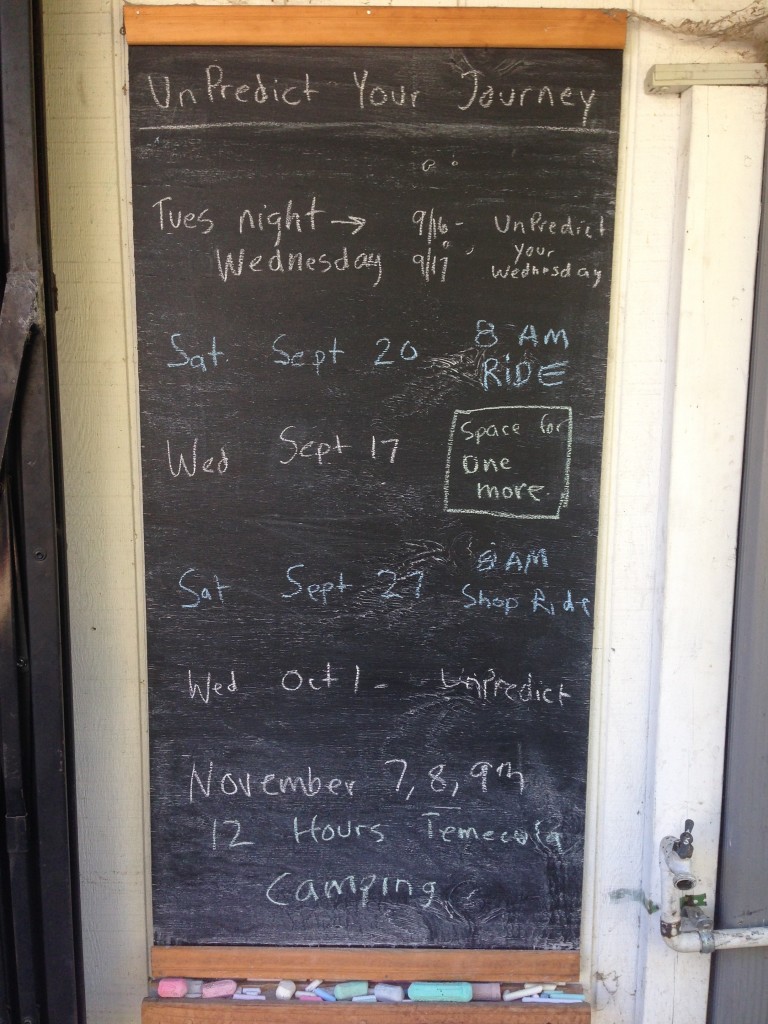 UnPredict Your Journey
Tues night → 9/16 - UnPredict
your
Wednesday 9/17 Wednesday
Sat Sept 20 8 AM
RIDE
Wed Sept 17 Space for
one
more.
Sat Sept 27 8 AM
Shop Ride
Wed Oct 1 - UnPredict
November 7, 8, 9th
12 Hours Temecula
Camping